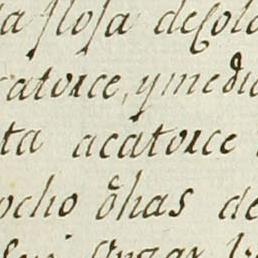 la flosa de Cola
catorce, y medio
ta acatorce
ocho òhas de